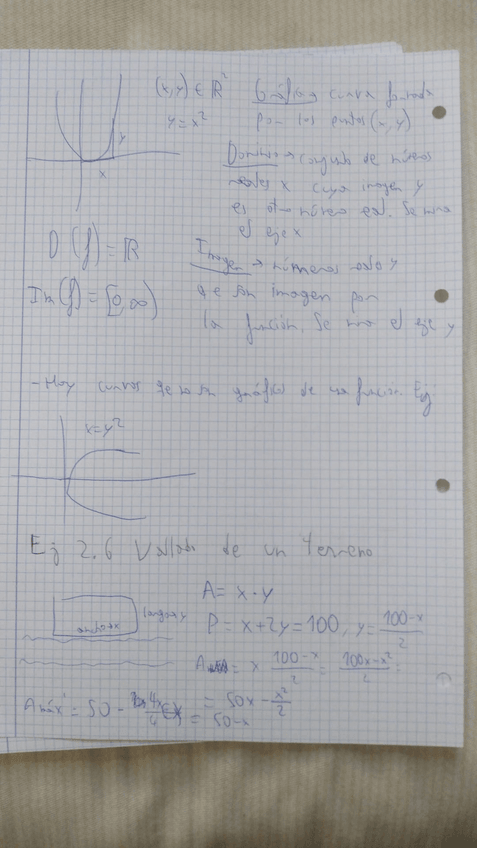 (x, y) ∈ ℝ² Gráfica curva formada
y = x² por los puntos (x, y)
y
x
Dominio → conjunto de números
reales x cuya imagen y
es otro número real. Se mira
el eje x
D(f) = ℝ
Imagen → números reales y
Im(f) = [0, ∞)
que son imagen por
la función. Se mira el eje y
- Hay curvas que no son gráfica de una función. Ej
x = y²
Ej 2.6 Vallado de un terreno
A = x · y
largo y
ancho x
P = x + 2y = 100, y = (100-x)/2
= x · (100-x)/2 = (100x-x²)/2 =
= 50x - x²/2
Amáx' = 50 -
= 50-x